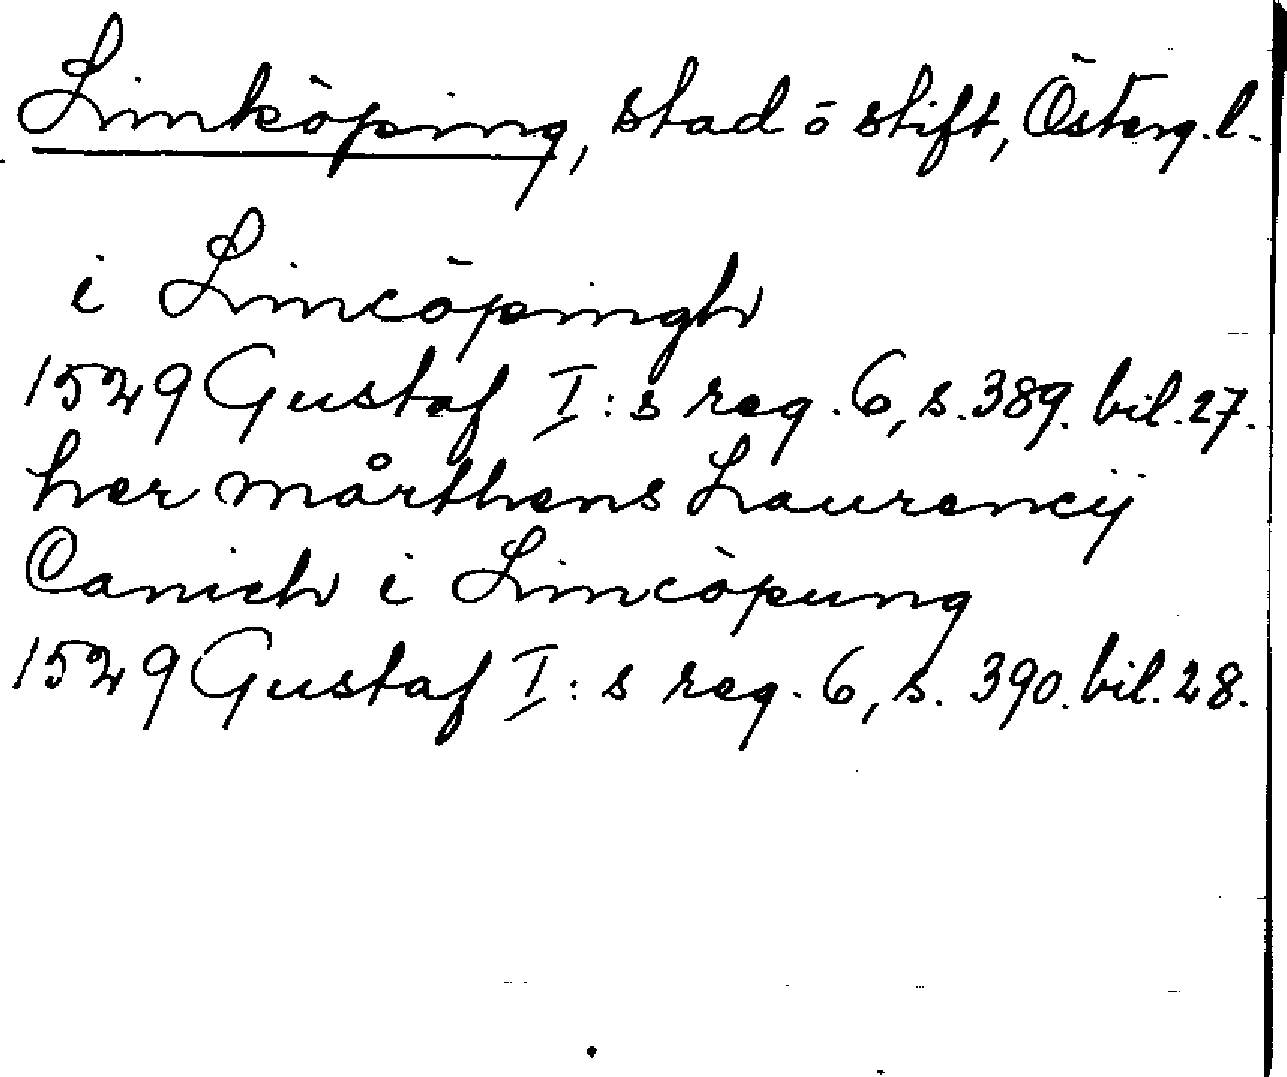 Linköping, stad o stift, Österg.l.
i Lincöpingh
1529 Gustaf I:s reg. 6, s. 389. bil. 27.
her mårthens Laurencij
Canich i Lincöpung
1529 Gustaf I:s reg. 6, s. 390. bil. 28.